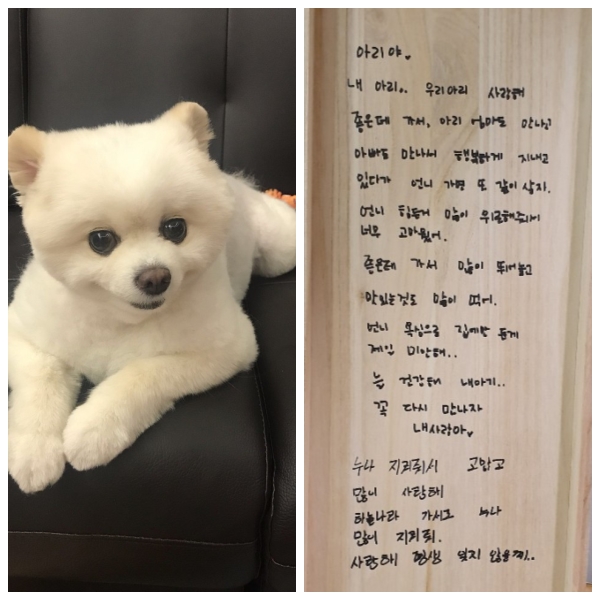 아리야♥
내 아리.. 우리아리 사랑해
좋은데 가서, 아리 엄마도 만나고
아빠도 만나서 행복하게 지내고
있다가 언니 가면 또 같이 살자.
언니 힘들때 많이 위로해줘서
너무 고마웠어.
좋은데 가서 많이 뛰어놀고
맛있는것도 많이 먹어.
언니 욕심으로 집에만 둔게
제일 미안해..
늘 건강해 내아기..
꼭 다시 만나자
내사랑아♥
누나 지켜줘서 고맙고
많이 사랑해
하늘나라 가서도 누나
많이 지켜줘.
사랑해 평생 잊지 않을께..